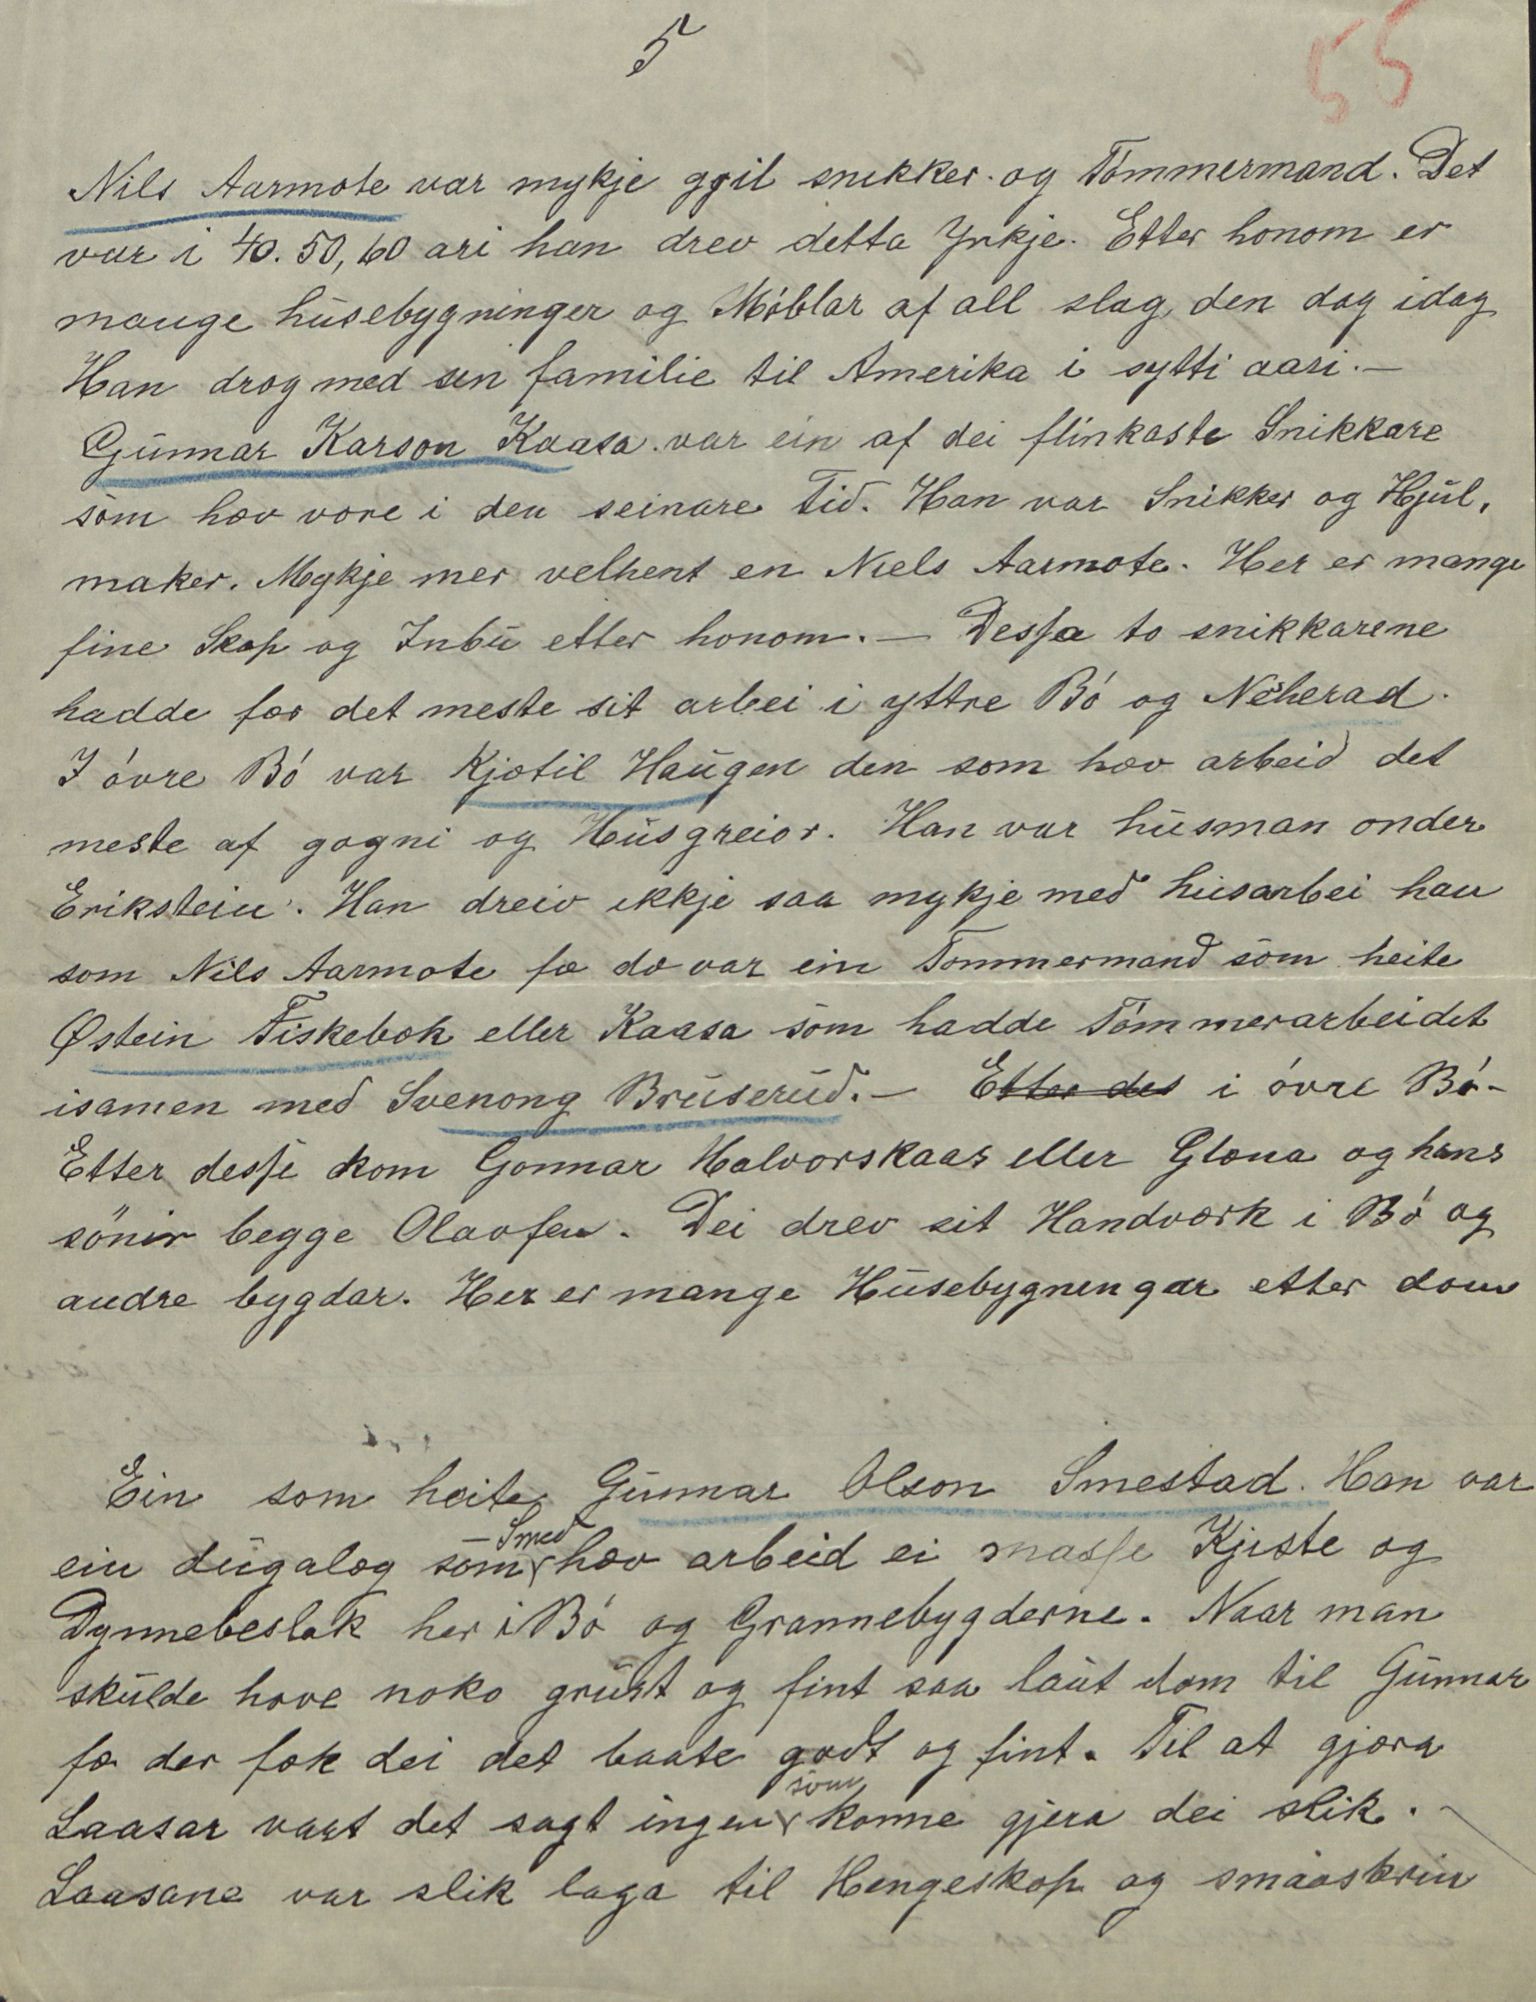 5
55
Nils Aarmote var mykje ggil snekker og Tómmermand. Det
var i 40. 50, 60 ari han drev detta Yrkje. Etter honom er
mauge húsebygninger og Móblar af all slag den dag idag
Han drog med sen familie til Amerika i sytti aari. —
Gúnnar Karson Kaasa var ein af dei flinkaste Snikkare
som hæv vore i den seinare Tid. Han var Snikker og Hjúl,
maker. Mykje mer velhent en Niels Aarmote. Her er mange
fine Skap og Inbú etter honom. — Dessa to snikkarene
hadde fær det meste sit arbei i yttre Bó og Néherad.
I óvre Bó var Kjætil Haúgen den som hæv arbeid det
meste af gogni og Húsgreior. Han var húsman onder
Erikstein. Han dreiv ikkje saa mykje med húsarbei han
som Nils Aarmote fæ dæ var ein Tommermand som heite
Østein Fiskebæk eller Kaasa som hadde Tómmerarbeidet
isamen med Svenong Brúserúd. — Etter des i óvre Bó-
Etter desse kom Gonnar Halvorskaas eller Glæna og hans
sónir begge Olavfen. Dei drev sit Handværk i Bó og
andre bygdar. Her er mange Húsebygnengar etter dom
Ein som heite Gúnnar Olson Smestad. Han var
ein dúgalæg som Smed hæv arbeid ei masse Kjiste og
Dynnebeslak her i Bó og Grannebygderne. Naar man
skúlde have noko grúst og fint saa laút dom til Gúnnar
fæ der fæk dei det baate godt og fint. Til at gjæra
Laasar vart det sagt ingen som konne gjera dei slik.
Laasane var slik laga til Hengeskap og smaaskrin